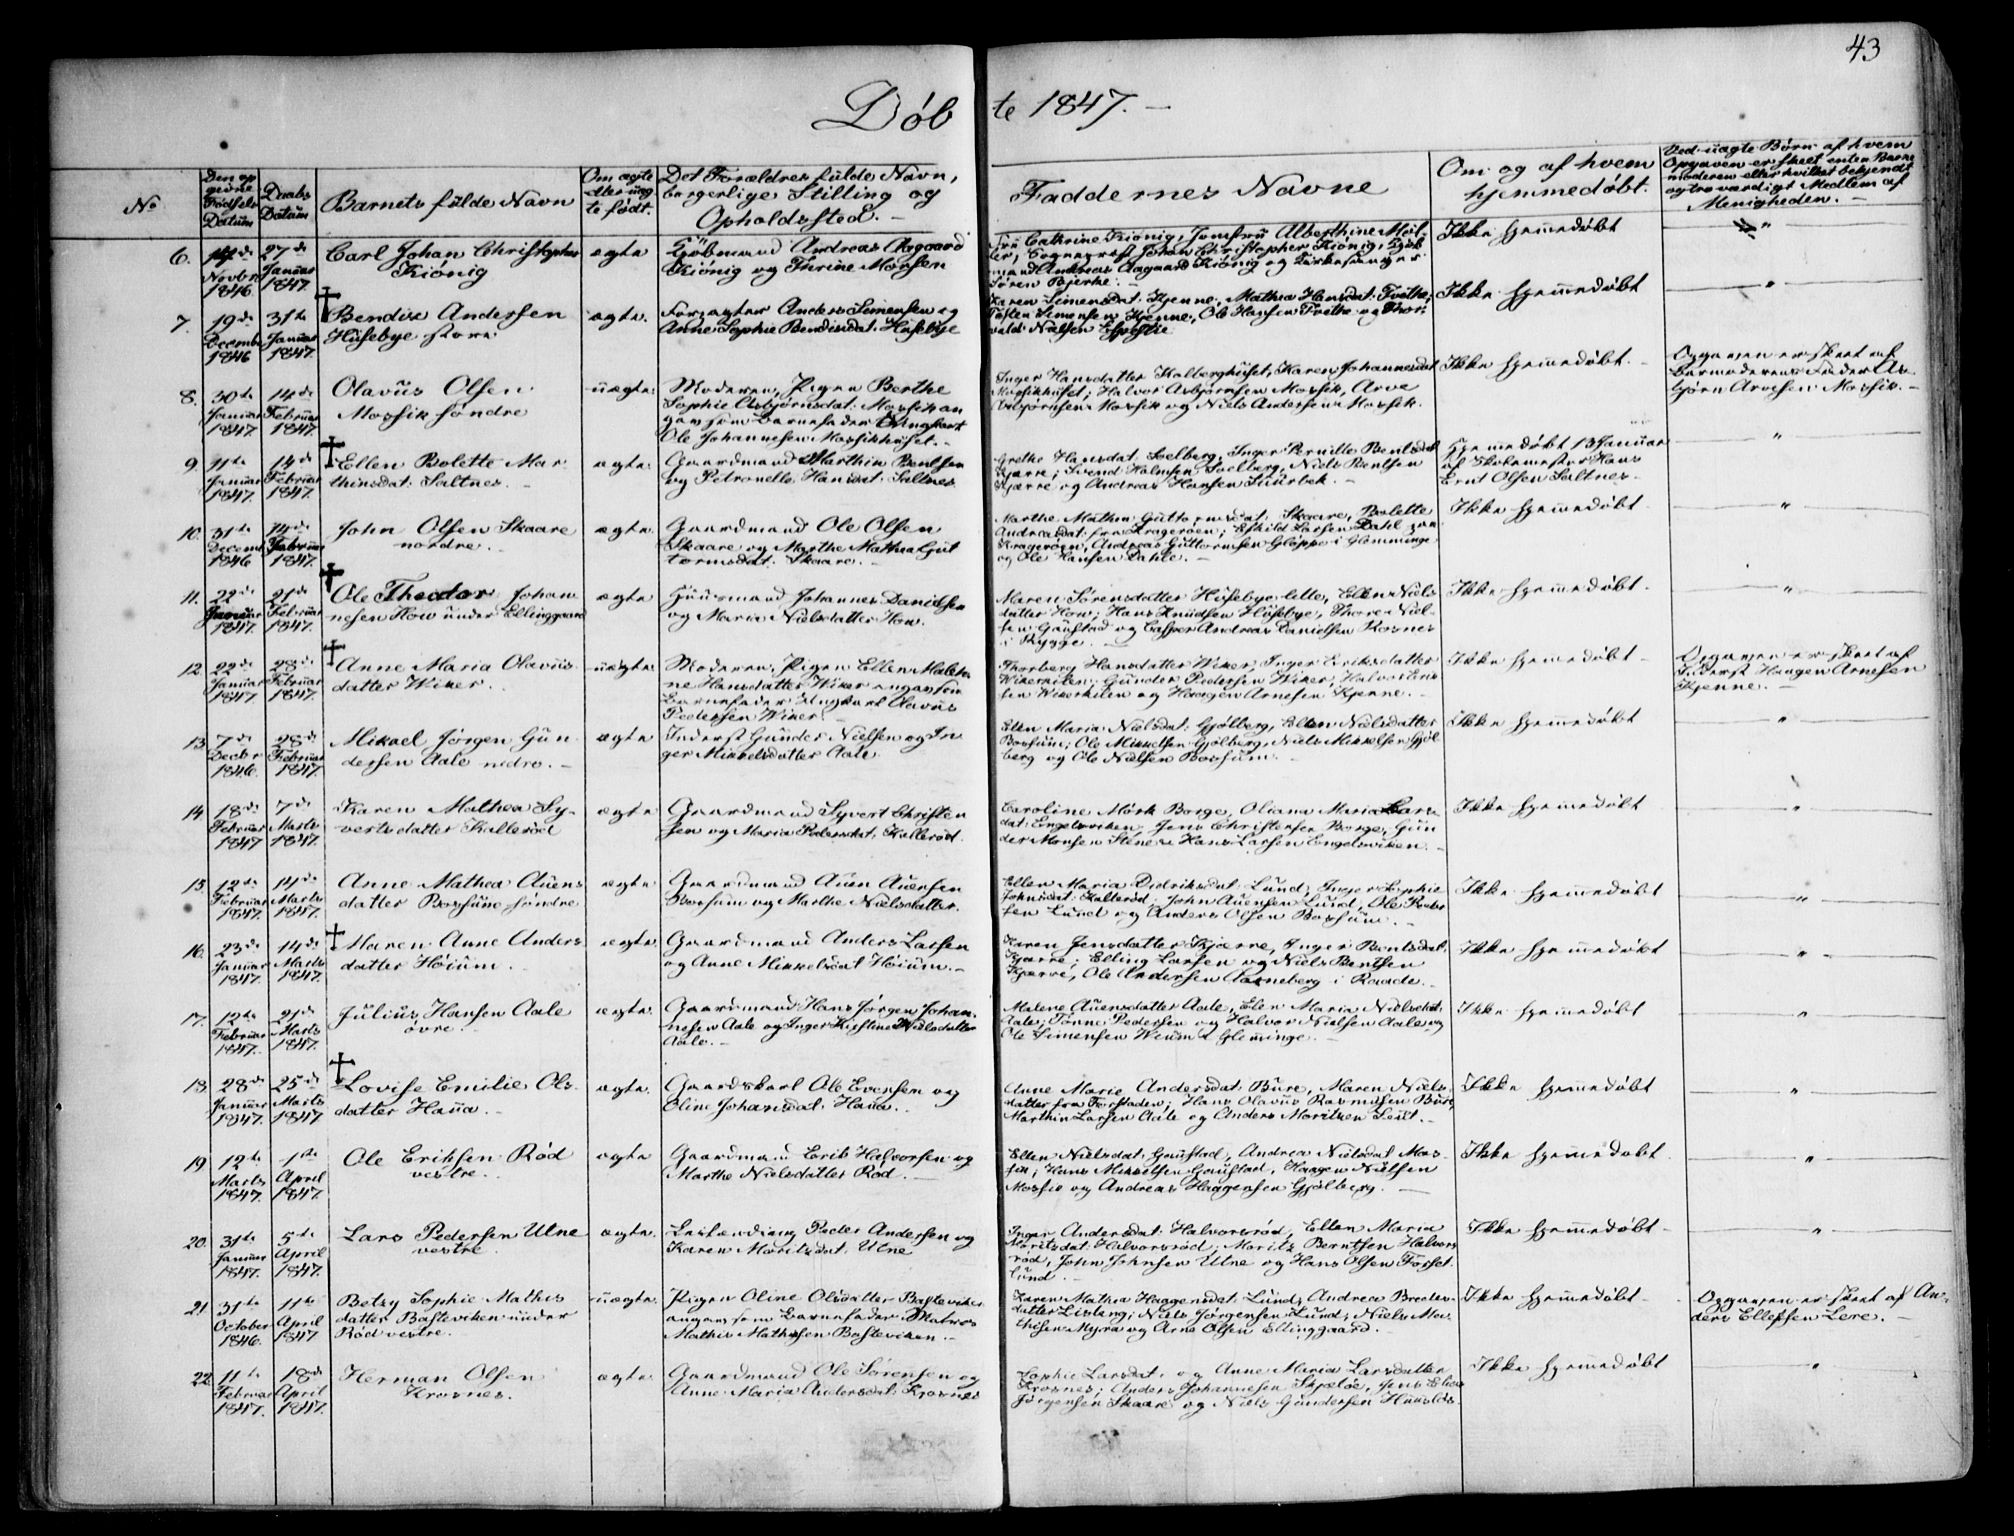 43
Døbte 1847. —
No
Den opgivne Fødsels Datum
Daabs Datum
Barnets fulde Navn
Om ægte eller uægte født.
Det Forældres fulde Navn, borgerlige Stilling og Opholdssted. —
Faddernes Navne
Om og af hvem hjemmedøbt.
Ved uægte Børn af hvem Opgaven er skeet enten Barnemoderen eller hvilket bekjendt og troværdigt Medlem af Menigheden. —
6. 14de Novbr 1846 27de Januar 1847. Carl Johan Christopher Kiönig ægte Kjøbmand Andreas Aagaard Kiönig og Thrine Monsen
Fru Cathrine Kiönig, Jomfru Alberthine Möller, Sogneprest Johan Christopher Kiönig, Kjøbmand Andreas Aagaard Kiönig og Kirkesanger Søren Bjerke. Ikke hjemmedøbt "
7. 19de Decembr 1846 31te Januar 1847. † Bendix Andersen Husebye store ægte. Forpagter Anders Simensen og Anne Sophie Bendixdat: Husebye
Karen Simensdat: Kjenne, Mathea Hansdat: Tvethe; Simensen Kjenne, Ole Hansen Tvethe og Thorvald Nielsen Ikke hjemmedøbt "
8. 30te Januar 1847 14de Februar 1847. Olavus Olsen Mossik søndre uægte. Moderen, Pigen Berthe Sophie Asbjørnsdat: Mossik angav som Barnefader Ungkarl Ole Johannesen Mossikhuset. —
Inger Hansdatter Kalberghuset, Karen Johannesdat Mossikhuset; Halvor Asbjørnsen Mossik, Arve Asbjørnsen Mossik og Niels Andersen Mossik. Ikke hjemmedøbt. Opgaven er skeet af Barnemoderens Fader Asbjørn Arvesen Mossik. —
9. 11te Januar 1847. 14de Februar 1847. † Ellen Bolette Marthinsdat: Saltnes. — ægte. Gaardmand Marthin Bentsen og Petronelle Hansdat: Saltnes.
Grethe Hansdat: Soelberg, Inger Pernille Bentsdat Kjærre; Svend Halmsen Soelberg, Niels Bentsen Kjærre og Andreas Hansen Suurbek. — Hjemmedøbt 13 Januar af Skolemester Hans Ernt Olsen Saltnes. "
10. 31te Decemb 1846 14de Februar 1847. John Olsen Skaare nordre. ægte. Gaardmand Ole Olsen Skaare og Marthe Mathea Guttormsdat: Skaare. —
Marthe Mathea Guttormsdat: Skaare, Bolette Andreasdat: fra Kragerøen; Eskild Larsen Dahl paa Kragerøen, Andreas Guttormsen Gløppe i Glemminge og Ole Hansen Dahle. — Ikke hjemmedøbt. "
11. 22de Januar 1847. 21de Februar 1847. † Ole Theodor Johannesen How under Ellinggaard ægte Huusmand Johannes Danielsen og Maria Nielsdatter How.
Maren Sørensdatter Husebye lille, Ellen Nielsdatter How; Hans Knudsen Husebye, Thore Nielsen Gaustad og Casper Andreas Danielsen Rosnes i Rygge. Ikke hjemmedøbt. "
12. 22de Januar 1847 28de Februar 1847. † Anne Maria Olavusdatter Wiker. uægte. Moderen, Pigen Ellen Malene Hansdatter Wiker angav som Barnefader Ungkarl Olavus Pedersen Wiker. —
Thorberg Hansdatter Wiker, Inger Eriksdatter Wikerkilen; Gunder Pedersen Wiker, Halvor Wikerkilen og Haagen Arnesen Kjenne. — Ikke hjemmedøbt Opgaven er skeet af Inderst Haagen Arnesen Kjenne. —
13. 7de Decbr 1846. 28de Februar 1847. Mikael Jørgen Gundersen Aale nedre. — ægte. Inderst Gunder Nielsen og Inger Mikkelsdatter Aale.
Ellen Maria Nielsdat: Gjølberg, Ellen Nielsdatter Bossum; Ole Mikkelsen Gjølberg, Niels Mikkelsen Gjølberg og Ole Nielsen Bossum. Ikke hjemmedøbt "
14 18de Februar 1847 7de Marts 1847. Karen Mathea Syvertsdatter Kallerød ægte Gaardmand Syvert Christensen og Maria Pedersdat: Kallerød.
Caroline Mörk Borge, Oliana Maria Larsdat: Engelsviken, Jens Christensen Borge, Gunder Monsen Stene Hans Larsen Engelsviken. — Ikke hjemmedøbt "
15. 12te Februar 1847. 14de Marts 1847. Anne Mathea Auensdatter Bossum søndre ægte Gaardmand Auen Auensen Bossum og Marthe Nielsdatter.
Ellen Maria Didriksdat: Lund, Inger Sophie Johnsdat: Kallerød; John Auensen Lund, Ole Pedersen Lund og Anders Olsen Bossum. — Ikke hjemmedøbt "
16. 23de Januar 1847. 14de Marts 1847. † Maren Anne Andersdatter Høium. ægte. Gaardmand Anders Larsen og Anne Mikkelsdat Høium. —
Karen Jensdatter Kjærre, Inger Bentsdat: Kjærre; Elling Larsen og Niels Bentsen Kjærre, Ole Andersen Aarneberg i Raade. Ikke hjemmedøbt "
17. 12te Februar 1847. 21de Marts 1847. Julius Hansen Aale øvre. ægte. Gaardmand Hans Jørgen Johannesen Aale og Inger Kirstine Nielsdatter Aale. —
Malene Auensdatter Aale, Elen Maria Nielsdat: Aale; Tönne Pedersen og Halvor Nielsen Aale og Ole Simensen Wium i Gleminge. — Ikke hjemmedøbt "
18. 28de Januar 1847. 25de Marts 1847 † Lovise Emilie Olsdatter Haua. ægte. Gaardskarl Ole Evensen og Eline Johansdat: Haua.
Anne Marie Andersdat: Bure, Maren Nielsdatter fra Forstaden; Hans Olavus Rasmusen Bure, Marthin Larsen Aale og Anders Moritzen Leut. — Ikke hjemmedøbt "
19 12te Marts 1847. 1ste April 1847. Ole Eriksen Rød vestre. ægte Gaardmand Erik Halvorsen og Marthe Nielsdatter Rød. —
Ellen Nielsdat: Gaustad, Andrea Nielsdat Mossin; Hans Mikkelsen Gaustad, Haagen Nielsen Mossie og Andreas Haagensen Gjølberg. — Ikke hjemmedøbt. "
20. 31te Januar 1847. 5te April 1847. Lars Pedersen Ulne vestre ægte. Leilænding Peder Andersen og Karen Moritsdat: Ulne
Inger Andersdat: Halvorsrød, Ellen Maria Moritsdat: Halvorsrød; Moritz Berntsen Halvorsrød, John Johnsen Ulne og Hans Olsen Fosselund. — Ikke hjemmedøbt "
21. 31te October 1846. 11te April 1847 Betzy Sophie Mathisdatter Basteviken under Rød vestre. uægte. Pigen Oline Olsdatter Basteviken angav som Barnefader Matros Mathis Mathisen Basteviken. —
Karen Mathea Haagensdat: Lund, Andrea datter Lisleng; Niels Jørgensen Lund, Niels Mathisen Myra og Arne Olsen Ellinggaard. — Ikke hjemmedøbt. Opgaven er skeet af Anders Ellefsen Lere. —
22 11te Februar 1847. 18de April 1847. Herman Olsen Krosnes. ægte. Gaardmand Ole Sørensen og Anne Maria Andersdat: Krosnes
Sophie Larsdat: og Anne Maria Larsdatter Krosnes; Anders Johannesen Skjeløe, Jens Jørgensen Skaare og Niels Gundersen Ikke hjemmedøbt "